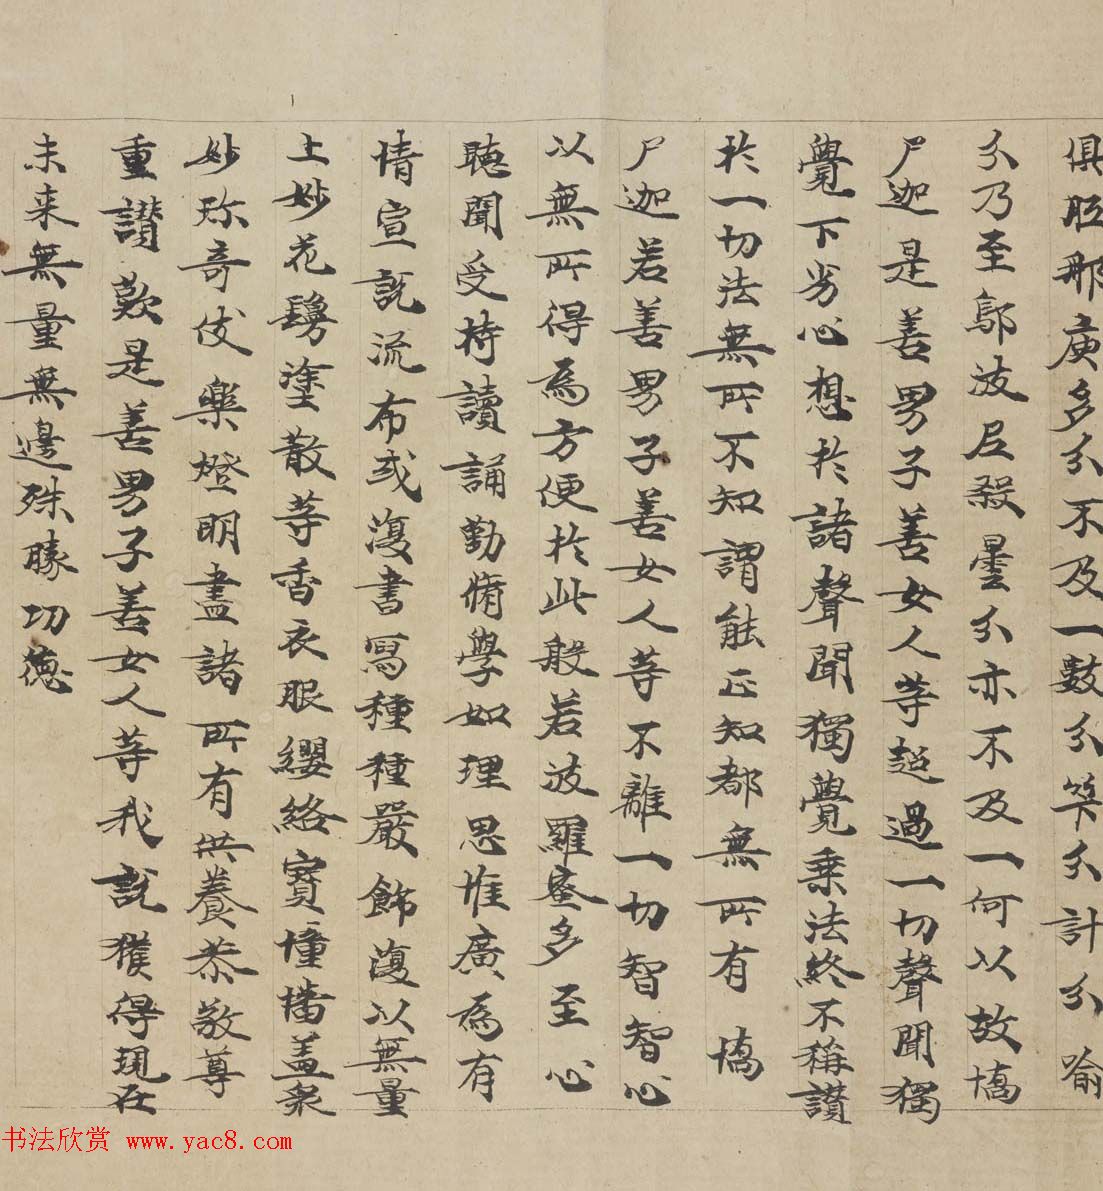 俱胝那庾多分不及一數分筭分計分喻
分乃至鄔波尼殺曇分亦不及一何以故憍
尸迦是善男子善女人等超過一切聲聞獨
覺下劣心想於諸聲聞獨覺乘法終不稱讃
於一切法無所不知謂能正知都無所有憍
尸迦若善男子善女人等不離一切智智心
以無所得為方便於此般若波羅蜜多至心
聽聞受持讀誦勤脩學如理思惟廣為有
情宣說流布或復書寫種種嚴飾復以無量
上妙花鬘塗散等香衣服纓絡寶幢幡盖衆
妙珎奇伎樂燈明盡諸所有供養恭敬尊
重讃歎是善男子善女人等我說獲得現在
未來無量無邊殊勝功德
书法欣赏 www.yac8.com